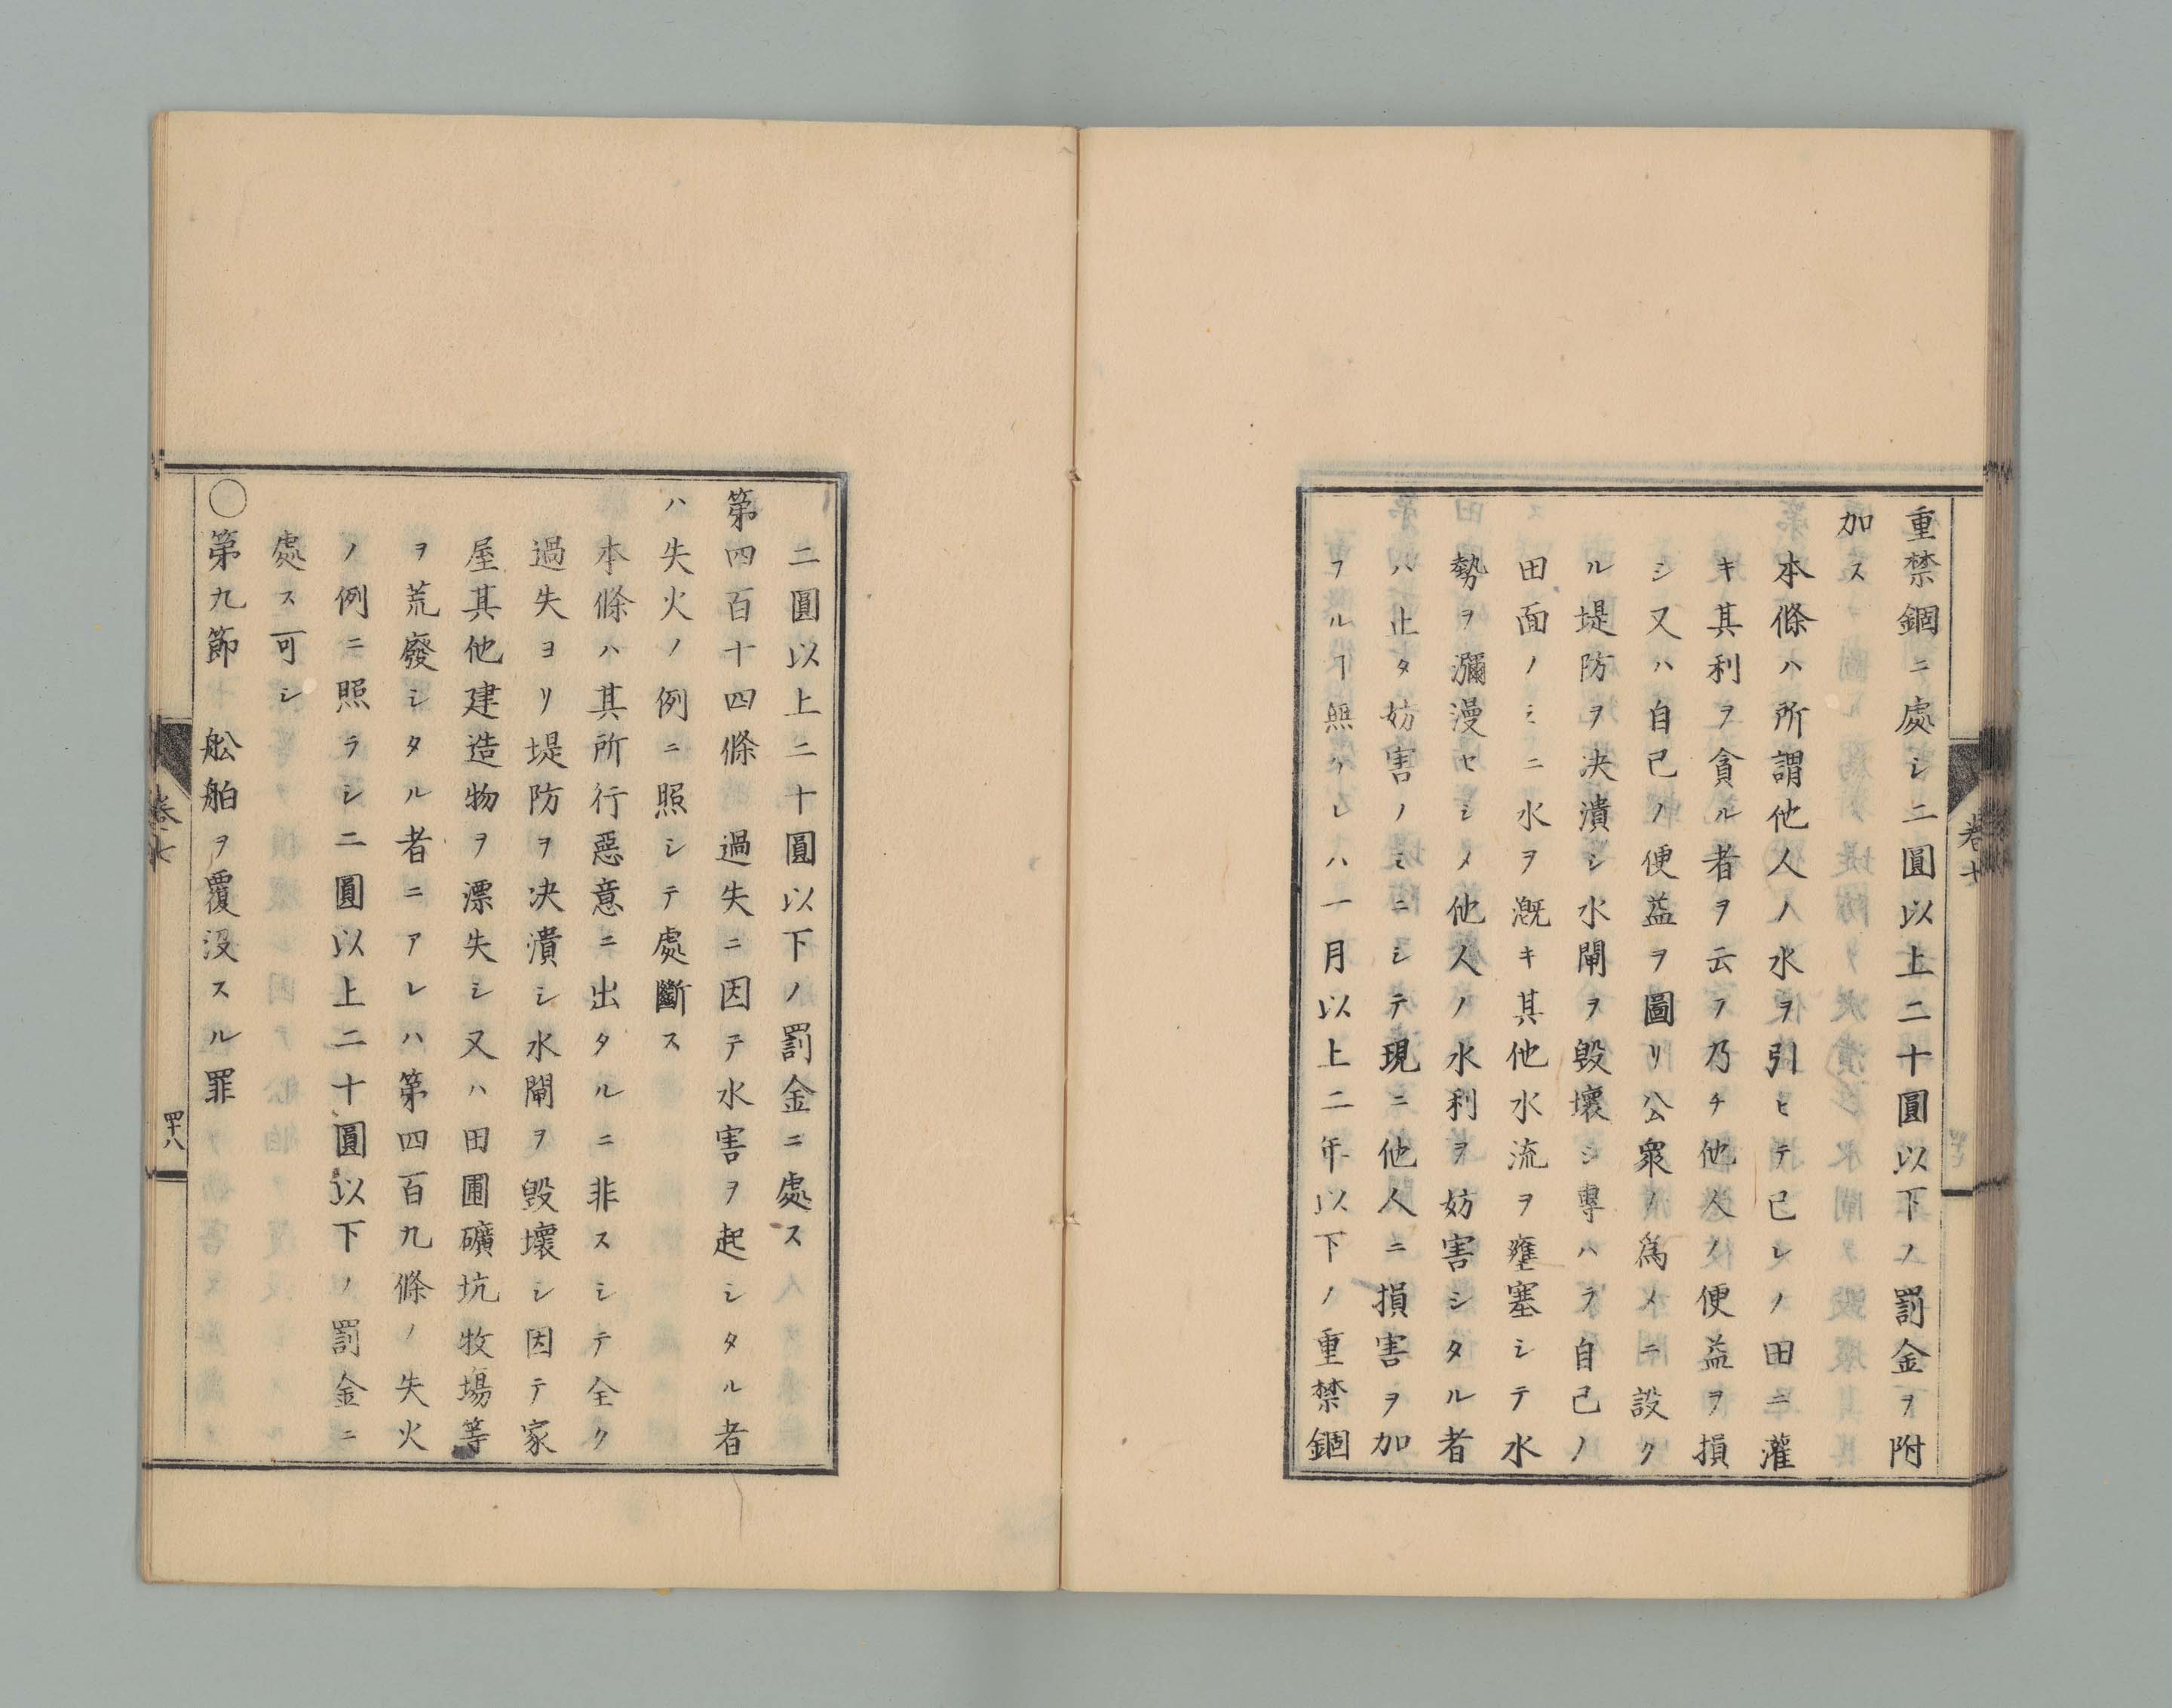 重禁錮ニ處シ二圓以上二十圓以下ノ罰金ヲ附
加ス
本條ハ所謂他人ノ水ヲ引ヒテ己レノ田ニ灌
キ其利ヲ貪ル者ヲ云フ乃チ他人ノ便益ヲ損
シ又ハ自己ノ便益ヲ圖リ公衆ノ爲メニ設ク
ル堤防ヲ决潰シ水閘ヲ毀壞シ專ハラ自己ノ
田面ノミニ水ヲ漑キ其他水流ヲ壅塞シテ水
勢ヲ瀰漫セシメ他人ノ水利ヲ妨害シタル者
ハ止タ妨害ノミニシテ現ニ他人ニ損害ヲ加
フルヿ無ケレハ一月以上二年以下ノ重禁錮
卷七
二圓以上二十圓以下ノ罰金ニ處ス
第四百十四條 過失ニ因テ水害ヲ起シタル者
ハ失火ノ例ニ照シテ處斷ス
本條ハ其所行惡意ニ出タルニ非スシテ全ク
過失ヨリ堤防ヲ决潰シ水閘ヲ毀壞シ因テ家
屋其他建造物ヲ漂失シ又ハ田圃礦坑牧場等
ヲ荒廢シタル者ニアレハ第四百九條ノ失火
ノ例ニ照ラシ二圓以上二十圓以下ノ罰金ニ
處ス可シ
○第九節 舩舶ヲ覆沒スル罪
卷七
四十八